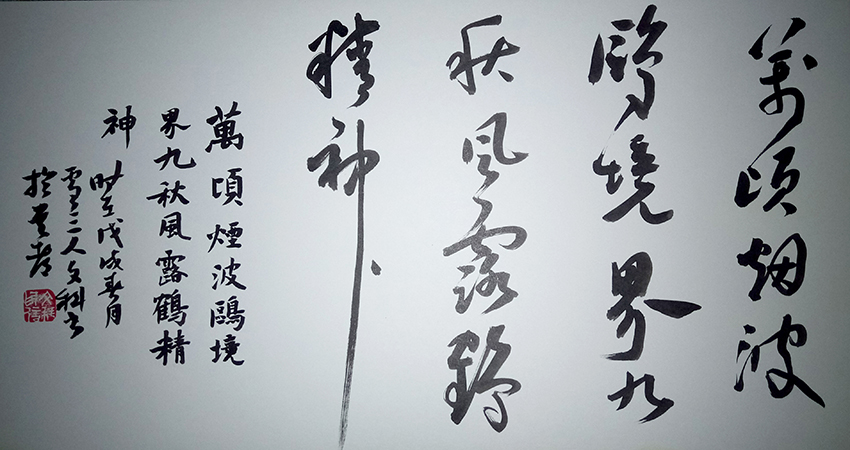 萬頃烟波
鷗境界九
秋風露鶴
精神
萬頃煙波鷗境
界九秋風露鶴精
神
時在戊戌春月
雪三人文科書
於